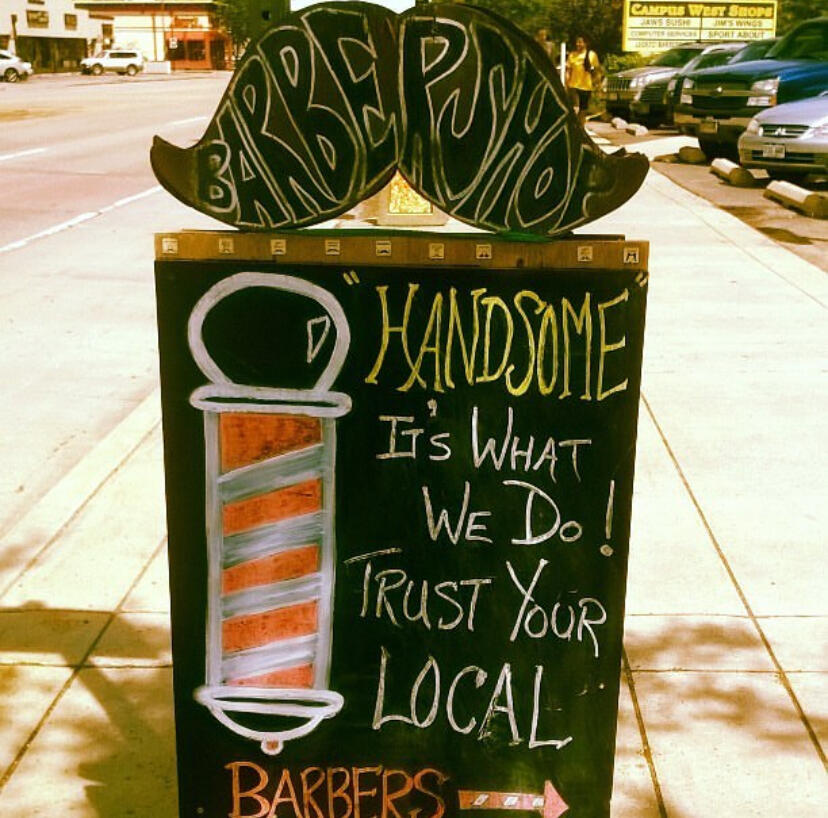 CAMPUS WEST SHOPS
JAWS SUSHI JIM'S WINGS
COMPUTER SERVICES SPORT ABOUT
BARBERSHOP
"HANDSOME"
IT'S WHAT
WE DO!
TRUST YOUR
LOCAL
BARBERS